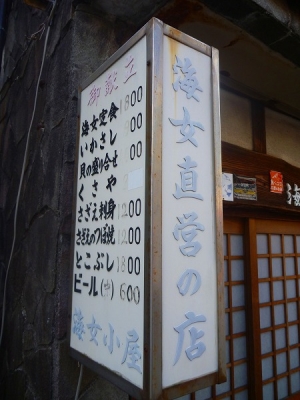 御献立
海女定食 1800
いかさし 00
貝の盛り合せ 00
くさや
さざえ刺身 1200
さざえのつぼ焼 1200
とこぶし 1800
ビール(中) 600
海女小屋
海女直営の店
海